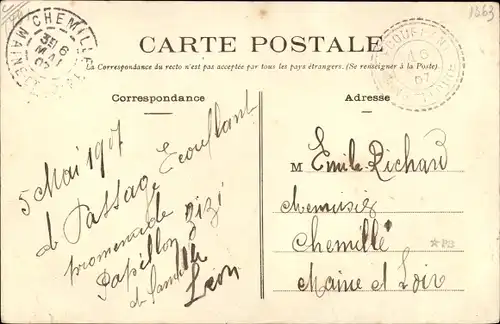 1363
CHEMILLÉ
MAINE-ET-LOIRE
6
MAI
07
CARTE POSTALE
La Correspondance du recto n'est pas acceptée par tous les pays étrangers. (Se renseigner à la Poste).
Correspondance
Adresse
5 Mai 1907
de Passage Ecouflant
promenade zizi
Papillon
de famille
Léon
M Emile Richard
chemisier
Chemillé
Maine et Loir